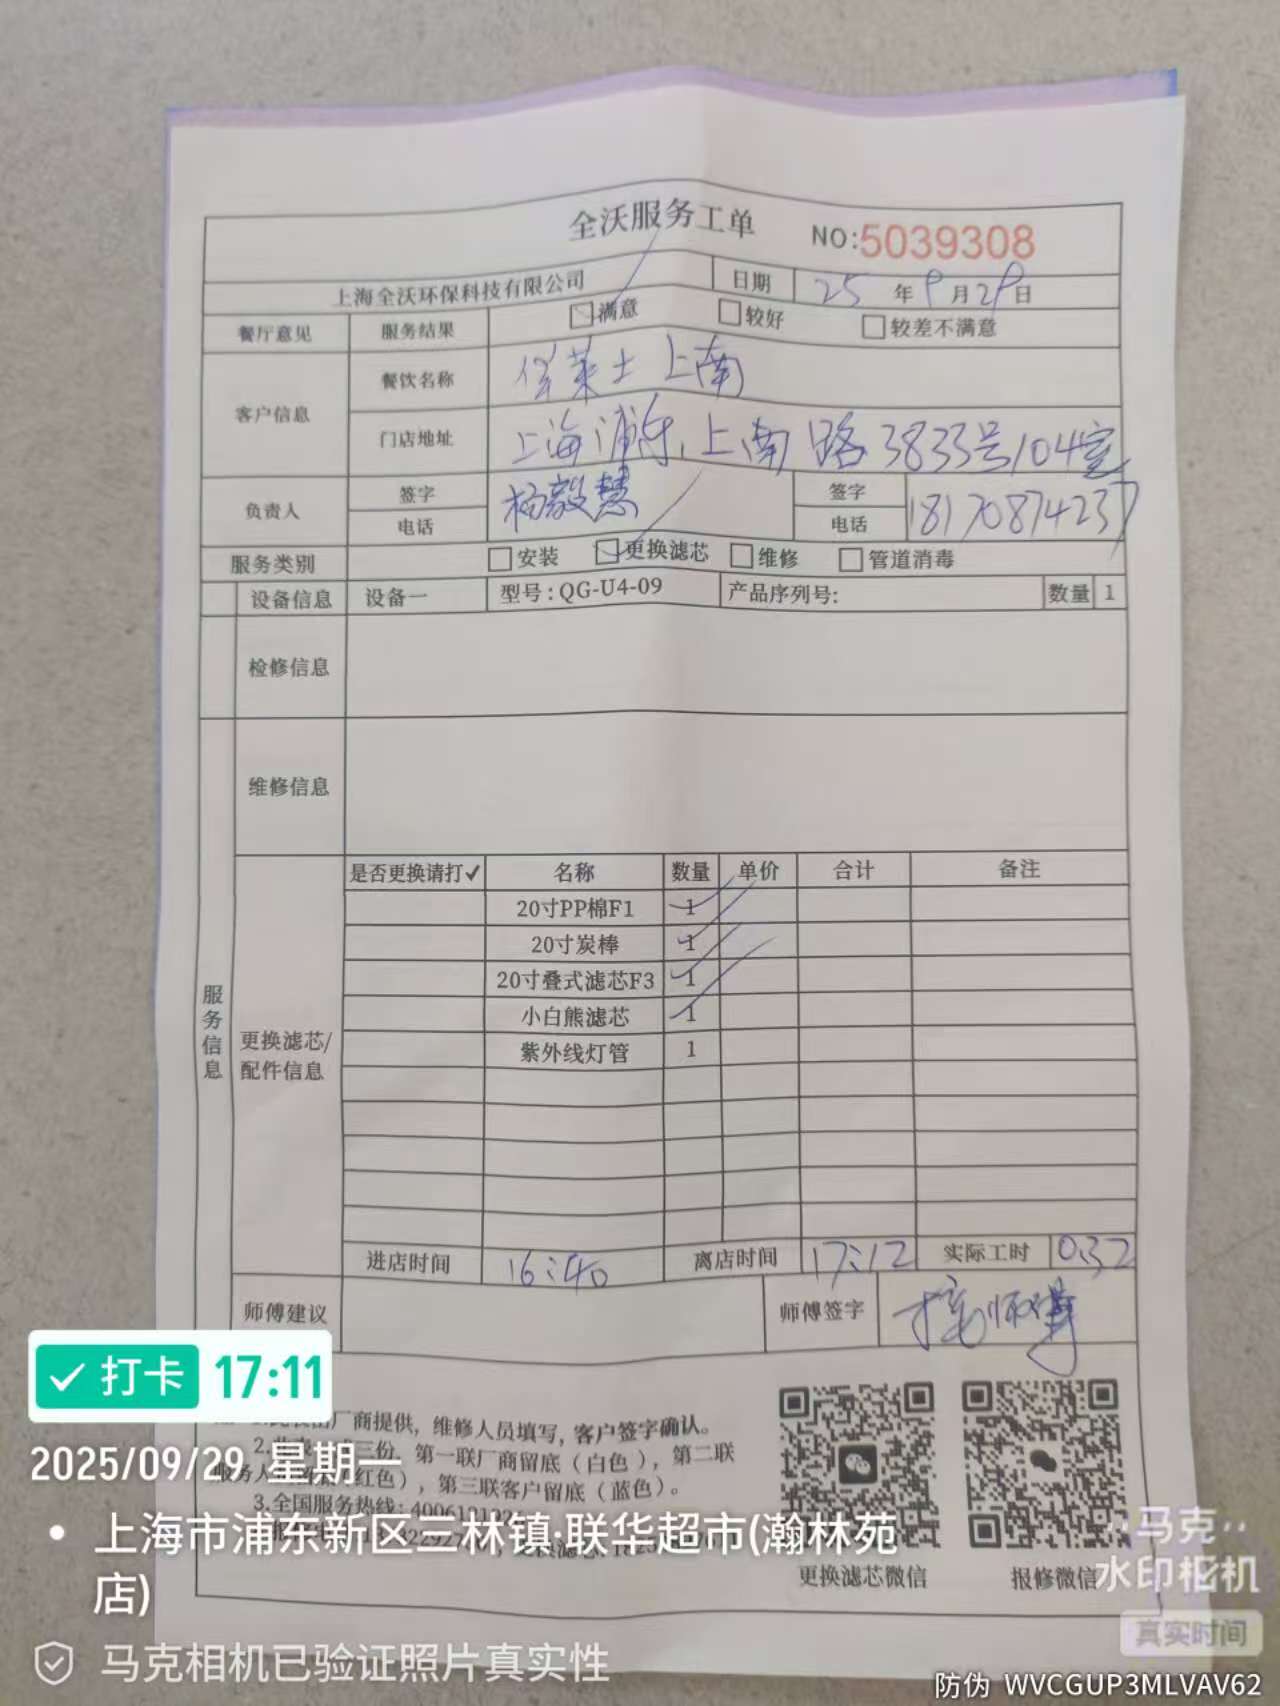 全沃服务工单 NO:5039308
上海全沃环保科技有限公司 日期 25年9月29日
餐厅意见 服务结果 满意 较好 较差不满意
客户信息 餐饮名称 莱士 上南
门店地址 上海浦东上南路3833号104室
负责人 签字 杨毅慧 签字
电话 电话 18170874237
服务类别 安装 更换滤芯 维修 管道消毒
设备信息 设备一 型号:QG-U4-09 产品序列号: 数量 1
检修信息
维修信息
服务信息
更换滤芯/
配件信息
是否更换请打✓ 名称 数量 单价 合计 备注
20寸PP棉F1 1
20寸炭棒 1
20寸叠式滤芯F3 1
小白熊滤芯 1
紫外线灯管 1
进店时间 16:40 离店时间 17:12 实际工时 0.32
师傅建议 师傅签字
厂商提供，维修人员填写，客户签字确认。
三份，第一联厂商留底（白色），第二联
红色），第三联客户留底（蓝色）。
3.全国服务热线:
更换滤芯微信 报修微信
打卡 17:11
2025/09/29 星期一
上海市浦东新区三林镇·联华超市(瀚林苑
店)
马克相机已验证照片真实性
马克
水印相机
真实时间
防伪 WVCGUP3MLVAV62